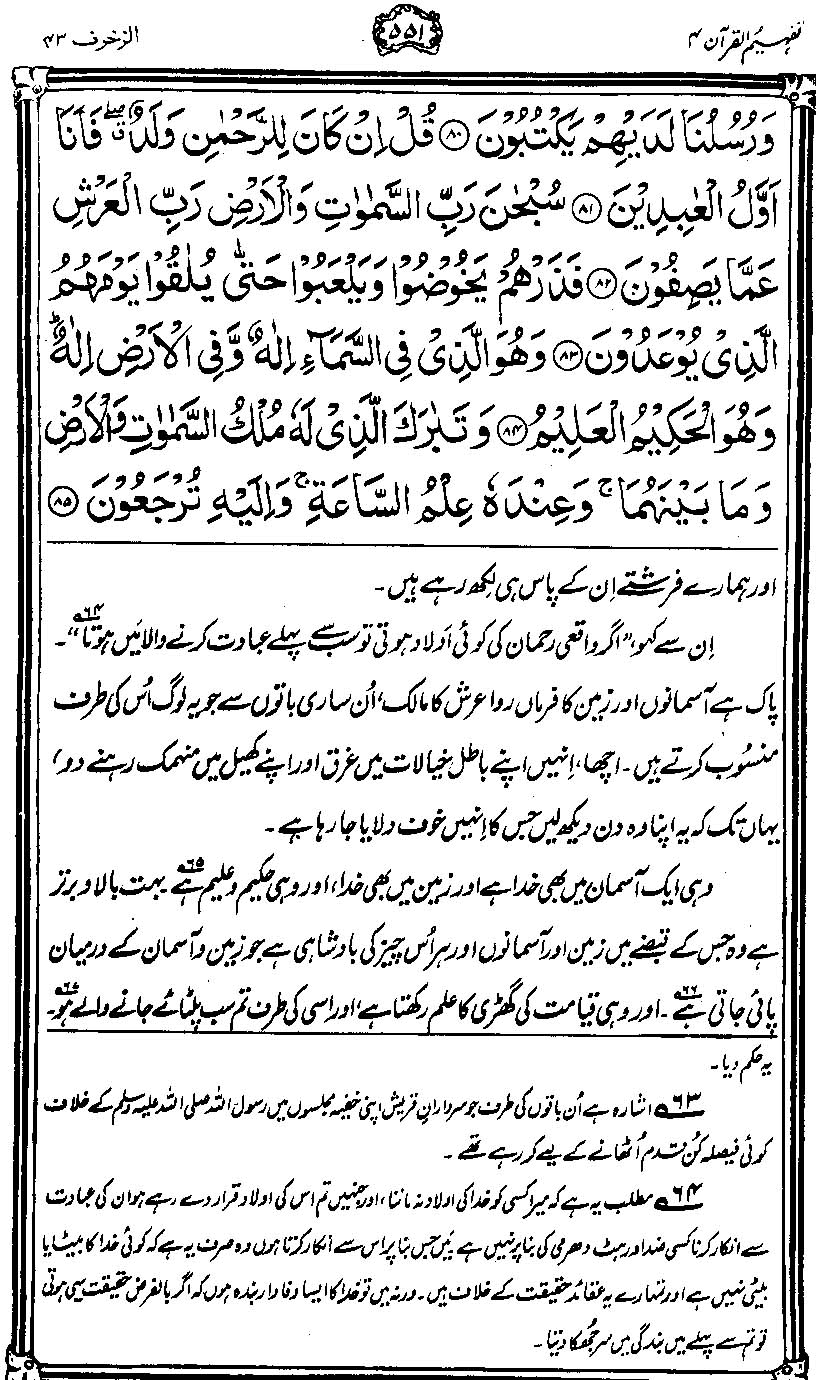 تفہیم القرآن ۴
۵۵۱
الزخرف ۴۳
وَرُسُلُنَا لَدَيْهِمْ يَكْتُبُوْنَ ﴿۸۰﴾ قُلْ اِنْ كَانَ لِلرَّحْمٰنِ وَلَدٌ ۖۗ فَاَنَا
اَوَّلُ الْعٰبِدِيْنَ ﴿۸۱﴾ سُبْحٰنَ رَبِّ السَّمٰوٰتِ وَالْاَرْضِ رَبِّ الْعَرْشِ
عَمَّا يَصِفُوْنَ ﴿۸۲﴾ فَذَرْهُمْ يَخُوْضُوْا وَيَلْعَبُوْا حَتّٰى يُلٰقُوْا يَوْمَهُمُ
الَّذِىْ يُوْعَدُوْنَ ﴿۸۳﴾ وَهُوَ الَّذِىْ فِى السَّمَآءِ اِلٰهٌ وَّفِى الْاَرْضِ اِلٰهٌ ؕ
وَهُوَ الْحَكِيْمُ الْعَلِيْمُ ﴿۸۴﴾ وَتَبٰرَكَ الَّذِىْ لَهٗ مُلْكُ السَّمٰوٰتِ وَالْاَرْضِ
وَمَا بَيْنَهُمَا ۚ وَعِنْدَهٗ عِلْمُ السَّاعَةِ ۚ وَاِلَيْهِ تُرْجَعُوْنَ ﴿۸۵﴾
اور ہمارے فرشتے اِن کے پاس ہی لکھ رہے ہیں۔
اِن سے کہو، ”اگر واقعی رحمان کی کوئی اَولاد ہوتی تو سب سے پہلے عبادت کرنے والا مَیں ہوتا۶۴“۔
پاک ہے آسمانوں اور زمین کا فرماں روا عرش کا مالک، اُن ساری باتوں سے جو یہ لوگ اُس کی طرف
منسُوب کرتے ہیں۔ اچھا، اِنہیں اپنے باطل خیالات میں غرق اور اپنے کھیل میں منہمک رہنے دو،
یہاں تک کہ یہ اپنا وہ دن دیکھ لیں جس کا اِنہیں خوف دلایا جا رہا ہے۔
وہی ایک آسمان میں بھی خدا ہے اور زمین میں بھی خدا، اور وہی حکیم و علیم ہے۶۵۔ بہت بالا و برتر
ہے وہ جس کے قبضے میں زمین اور آسمانوں اور ہر اُس چیز کی بادشاہی ہے جو زمین و آسمان کے درمیان
پائی جاتی ہے۶۶۔ اور وہی قیامت کی گھڑی کا علم رکھتا ہے، اور اسی کی طرف تم سب پلٹائے جانے والے ہو۶۷۔
یہ حکم دیا۔
۶۳ اشارہ ہے اُن باتوں کی طرف جو سردارانِ قریش اپنی خفیہ مجلسوں میں رسول اللہ صلی اللہ علیہ وسلم کے خلاف
کوئی فیصلہ کُن قدم اُٹھانے کے لیے کر رہے تھے۔
۶۴ مطلب یہ ہے کہ میرا کسی کو خدا کی اولاد نہ ماننا، اور جنہیں تم اس کی اولاد قرار دے رہے ہو ان کی عبادت
سے انکار کرنا کسی ضد اور ہٹ دھرمی کی بنا پر نہیں ہے۔ مَیں جس بنا پر اس سے انکار کرتا ہوں وہ صرف یہ ہے کہ کوئی خدا کا بیٹا یا
بیٹی نہیں ہے اور تمہارے یہ عقائد حقیقت کے خلاف ہیں۔ ورنہ میں تو خدا کا ایسا وفادار بندہ ہوں کہ اگر بالفرض حقیقت یہی ہوتی
تو تم سے پہلے میں بندگی میں سر جُھکا دیتا۔